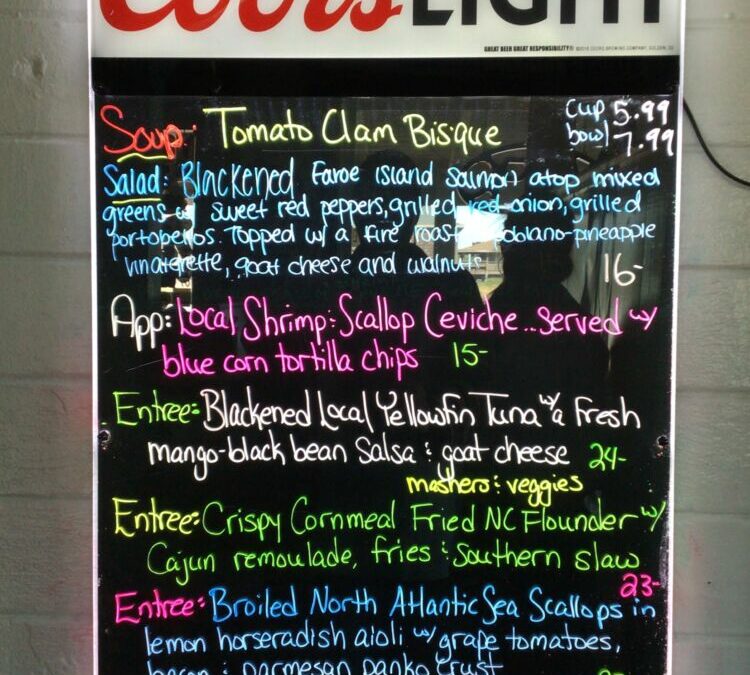 Coors LIGHT
GREAT BEER GREAT RESPONSIBILITY®
Soup: Tomato Clam Bisque cup 5.99
bowl 7.99
Salad: Blackened Faroe Island Salmon atop mixed
greens w/ sweet red peppers, grilled red onion, grilled
portobellos. Topped w/ a fire roasted poblano-pineapple
vinaigrette, goat cheese and walnuts 16-
App: Local Shrimp & Scallop Ceviche.. served w/
blue corn tortilla chips 15-
Entree: Blackened Local Yellowfin Tuna w/ a fresh
mango-black bean Salsa & goat cheese 24-
mashers & veggies
Entree: Crispy Cornmeal Fried NC Flounder w/
Cajun remoulade, fries & Southern slaw
23-
Entree: Broiled North Atlantic Sea Scallops in
lemon horseradish aioli w/ grape tomatoes,
bacon & parmesan panko crust